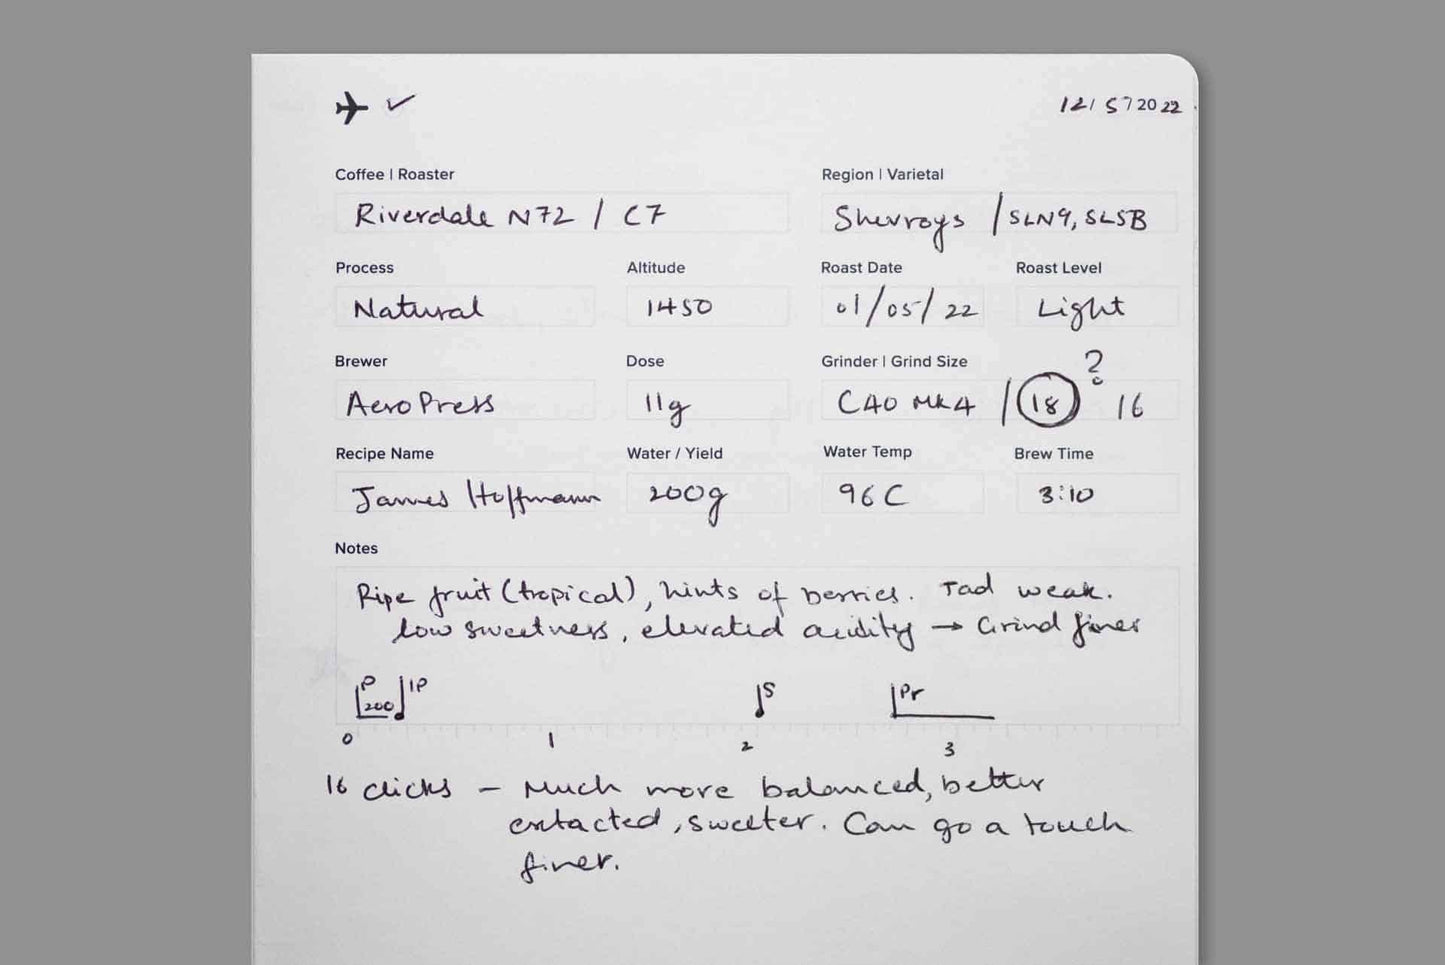 ✓ 12/ 5 / 2022
Coffee | Roaster
Riverdale N72 / C7
Region | Varietal
Shevroys / SLN9, SL5B
Process
Natural
Altitude
1450
Roast Date
01/05/22
Roast Level
Light
Brewer
AeroPress
Dose
11g
Grinder | Grind Size
C40 MK4 / 18 ? 16
Recipe Name
James Hoffmann
Water / Yield
200g
Water Temp
96 C
Brew Time
3:10
Notes
Ripe fruit (tropical), hints of berries. Tad weak.
low sweetness, elevated acidity → Grind finer
P 200 IP S Pr
0 1 2 3
16 clicks – Much more balanced, better
extacted, sweeter. Can go a touch
finer.